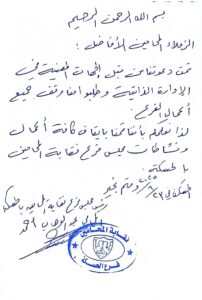 بسم الله الرحمن الرحيم
الزملاء المحامين الأفاضل :
تمت دعوتنا من قبل الجهات المعنية في
الإدارة الذاتية وطلبوا منا وقف جميع
أعمال الفرع .
لذا نعلمكم بأننا قمنا بإيقاف كافة أعمال
ونشاطات مجلس فرع نقابة المحامين
بالحسكة .
ودمتم بخير
رئيس مجلس فرع نقابة المحامين بالحسكة
المحامي عبد الوهاب
نقابة المحامين
فرع الحسكة